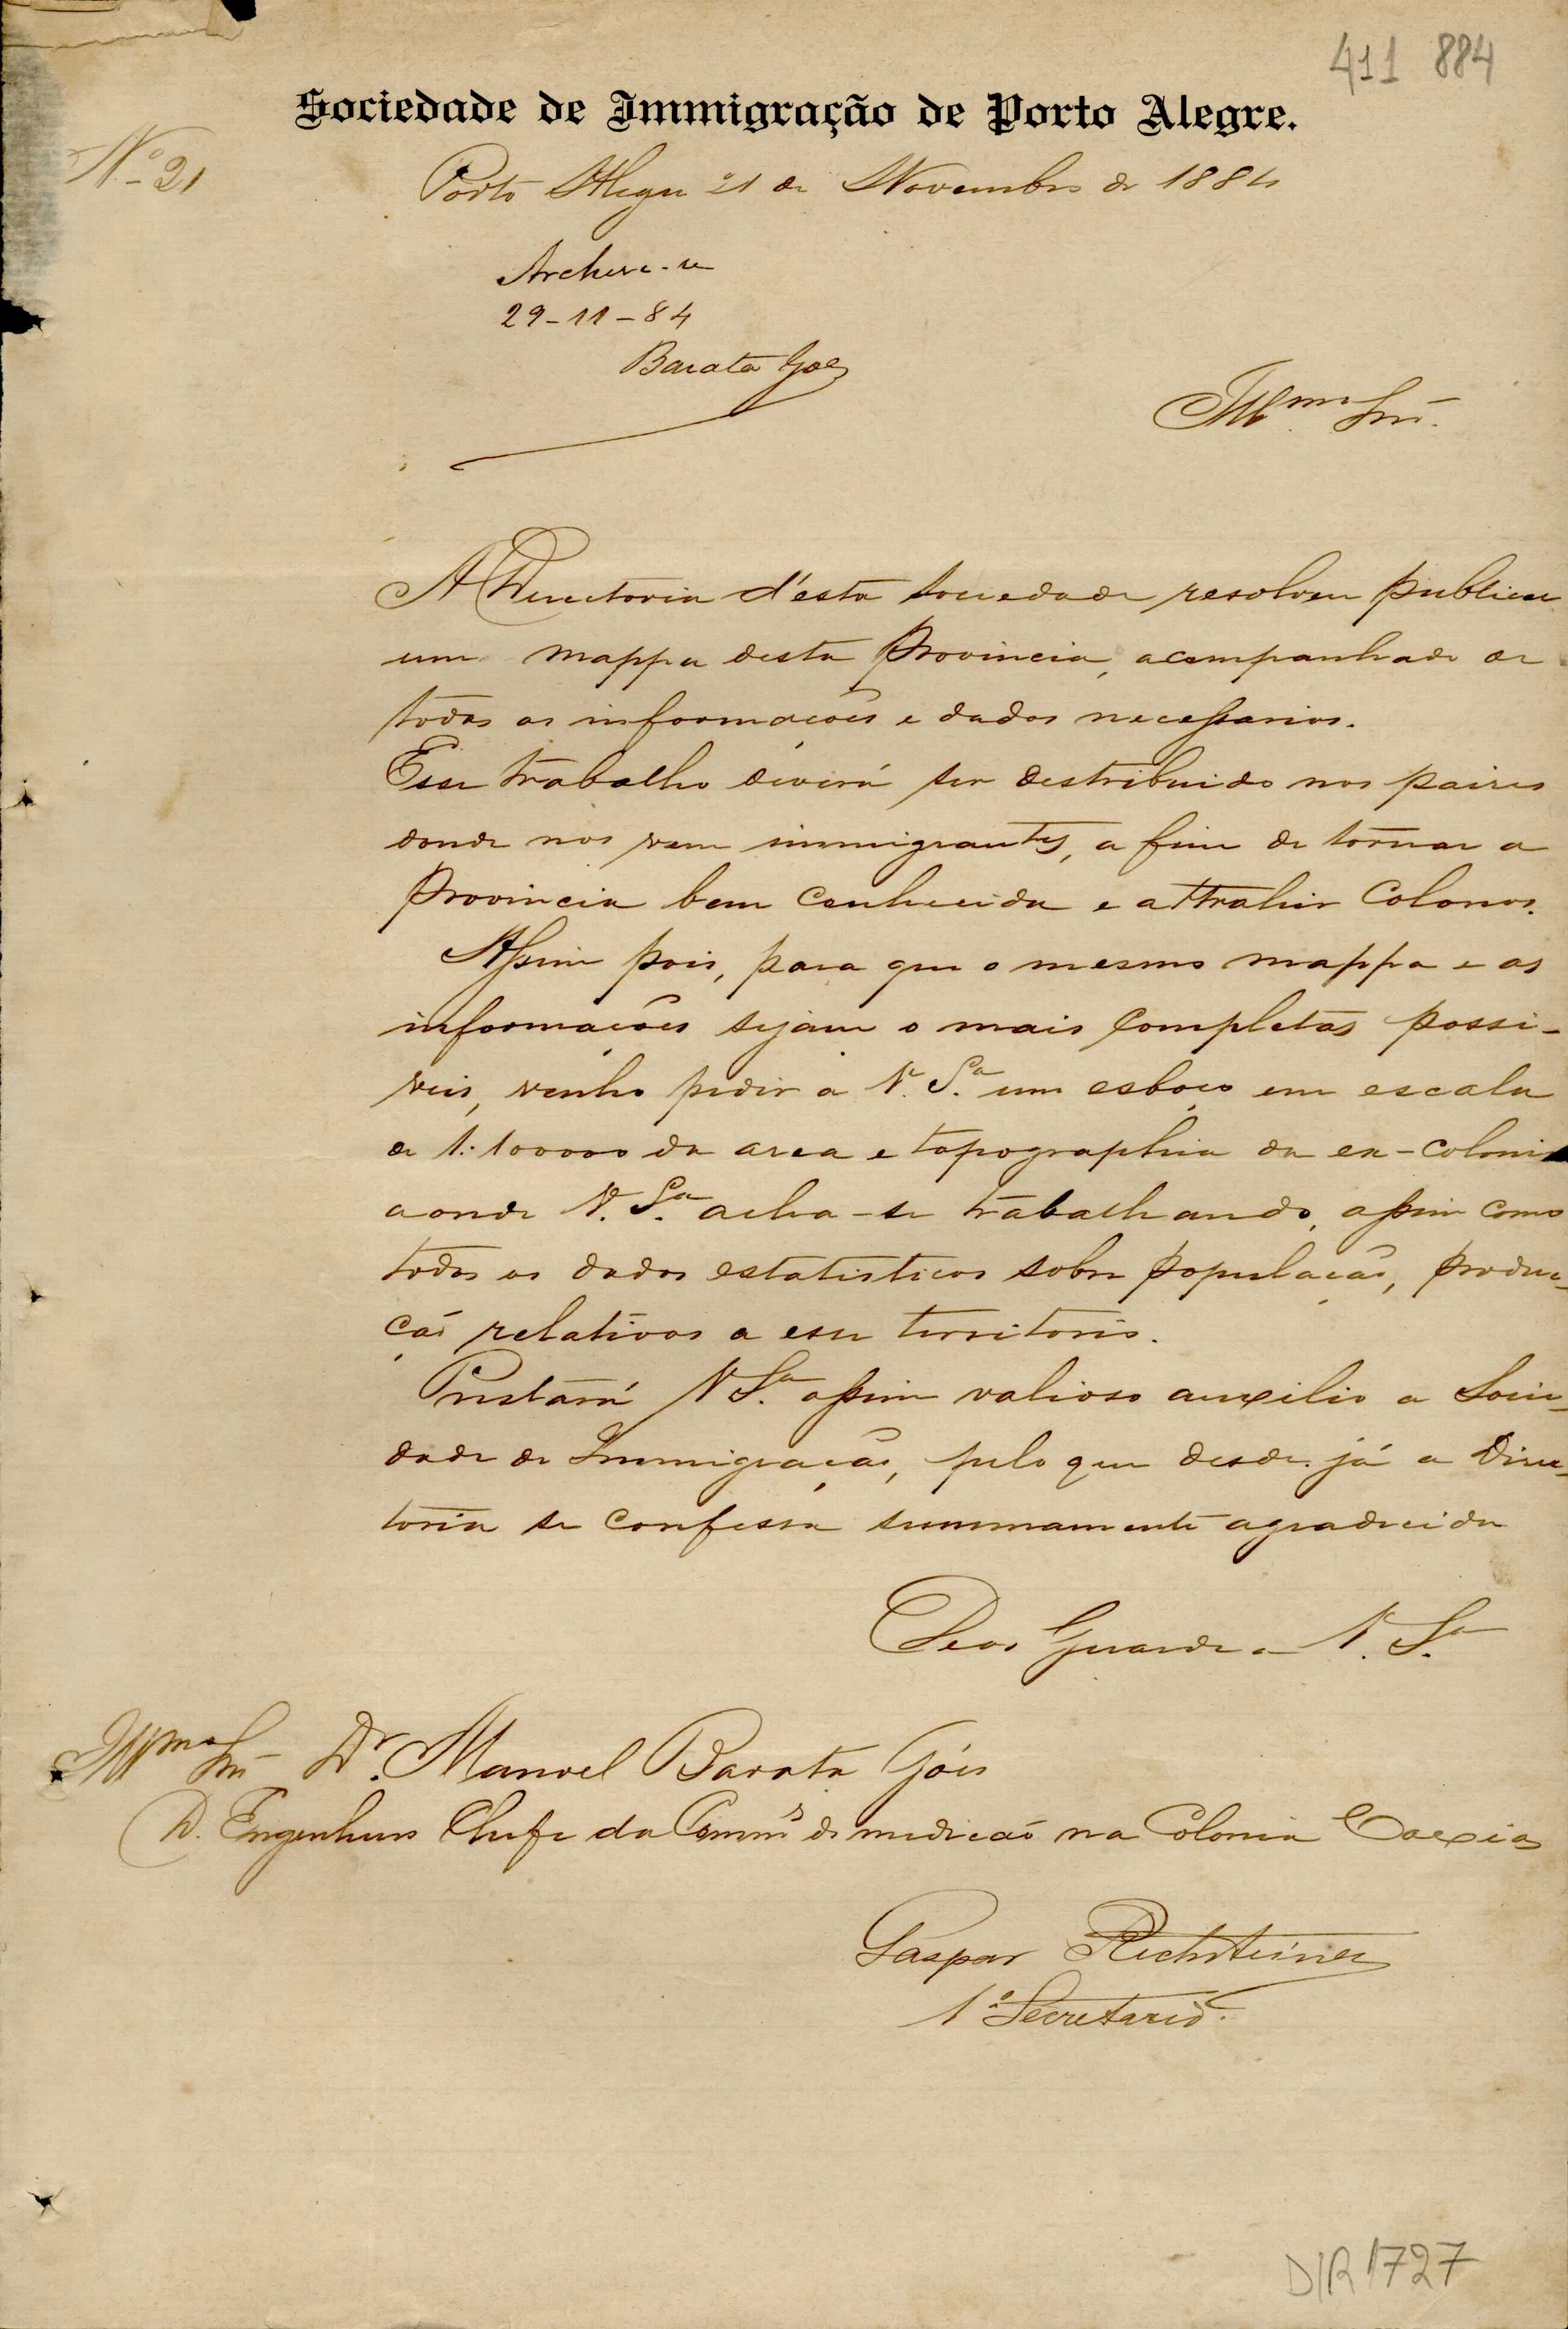 411 884
Sociedade de Immigração de Porto Alegre.
Nº 21
Porto Alegre 21 de Novembro de 1884
Archive-se
29-11-84
Barata Góes
Illmo Snr.
A Directoria d'esta Sociedade resolveu publicar
um mappa desta Provincia, acompanhado de
todas as informações e dados necessarios.
Esse trabalho deverá ser destribuido nos paizes
donde nos vem immigrantes, a fim de tornar a
Provincia bem conhecida e attrahir Colonos.
Assim pois, para que o mesmo mappa e as
informações sejam o mais completas possi-
veis, venho pedir a V. Sª um esboço em escala
de 1:100000 da area e topographia da ex-colonia
aonde V. Sª acha-se trabalhando, assim como
todos os dados estatisticos sobre população, produc-
ção relativos a esse territorio.
Prestará V Sª assim valioso auxilio a Socie-
dade de Immigração, pelo que desde já a Direc-
toria se confessa summamente agradecida
Deos Guarde a V. Sª
Illmo Snr Dr. Manoel Barata Góes
D. Engenheiro Chefe da Commsº de medicaõ na Colonia Caxias
Gaspar Rechsteiner
1º Secretario.
DIR 1727